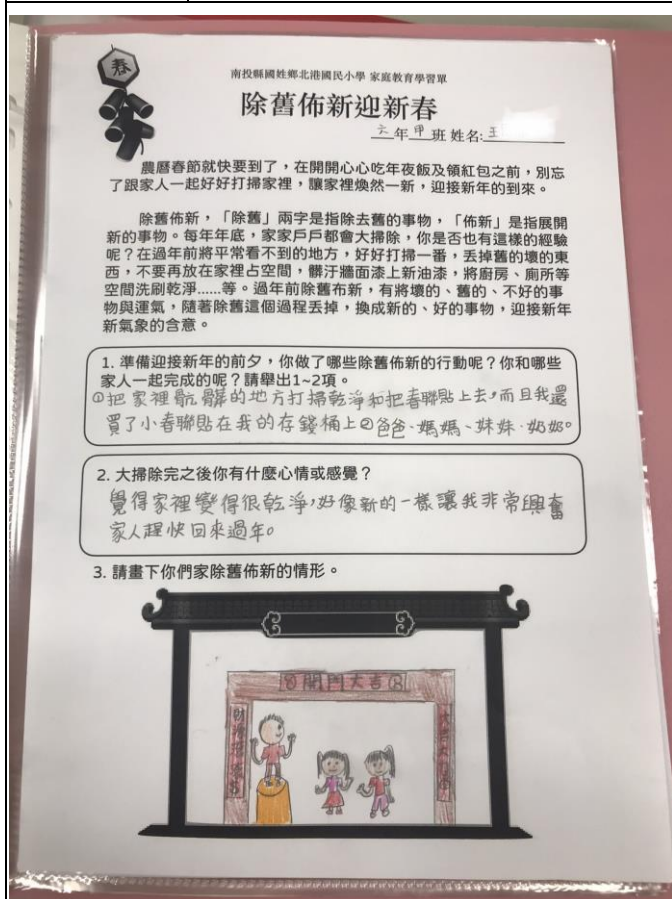 春
南投縣國姓鄉北港國民小學 家庭教育學習單
除舊佈新迎新春
六年甲班 姓名:王
農曆春節就快要到了,在開開心心吃年夜飯及領紅包之前,別忘
了跟家人一起好好打掃家裡,讓家裡煥然一新,迎接新年的到來。
除舊佈新,「除舊」兩字是指除去舊的事物,「佈新」是指展開
新的事物。每年年底,家家戶戶都會大掃除,你是否也有這樣的經驗
呢?在過年前將平常看不到的地方,好好打掃一番,丟掉舊的壞的東
西,不要再放在家裡占空間,髒汙牆面漆上新油漆,將廚房、廁所等
空間洗刷乾淨……等。過年前除舊布新,有將壞的、舊的、不好的事
物與運氣,隨著除舊這個過程丟掉,換成新的、好的事物,迎接新年
新氣象的含意。
1. 準備迎接新年的前夕,你做了哪些除舊佈新的行動呢?你和哪些
家人一起完成的呢?請舉出1~2項。
①把家裡骯髒的地方打掃乾淨和把春聯貼上去,而且我還
買了小春聯貼在我的存錢桶上②爸爸、媽媽、妹妹、奶奶。
2. 大掃除完之後你有什麼心情或感覺?
覺得家裡變得很乾淨,好像新的一樣讓我非常興奮
家人趕快回來過年。
3. 請畫下你們家除舊佈新的情形。
開門大吉